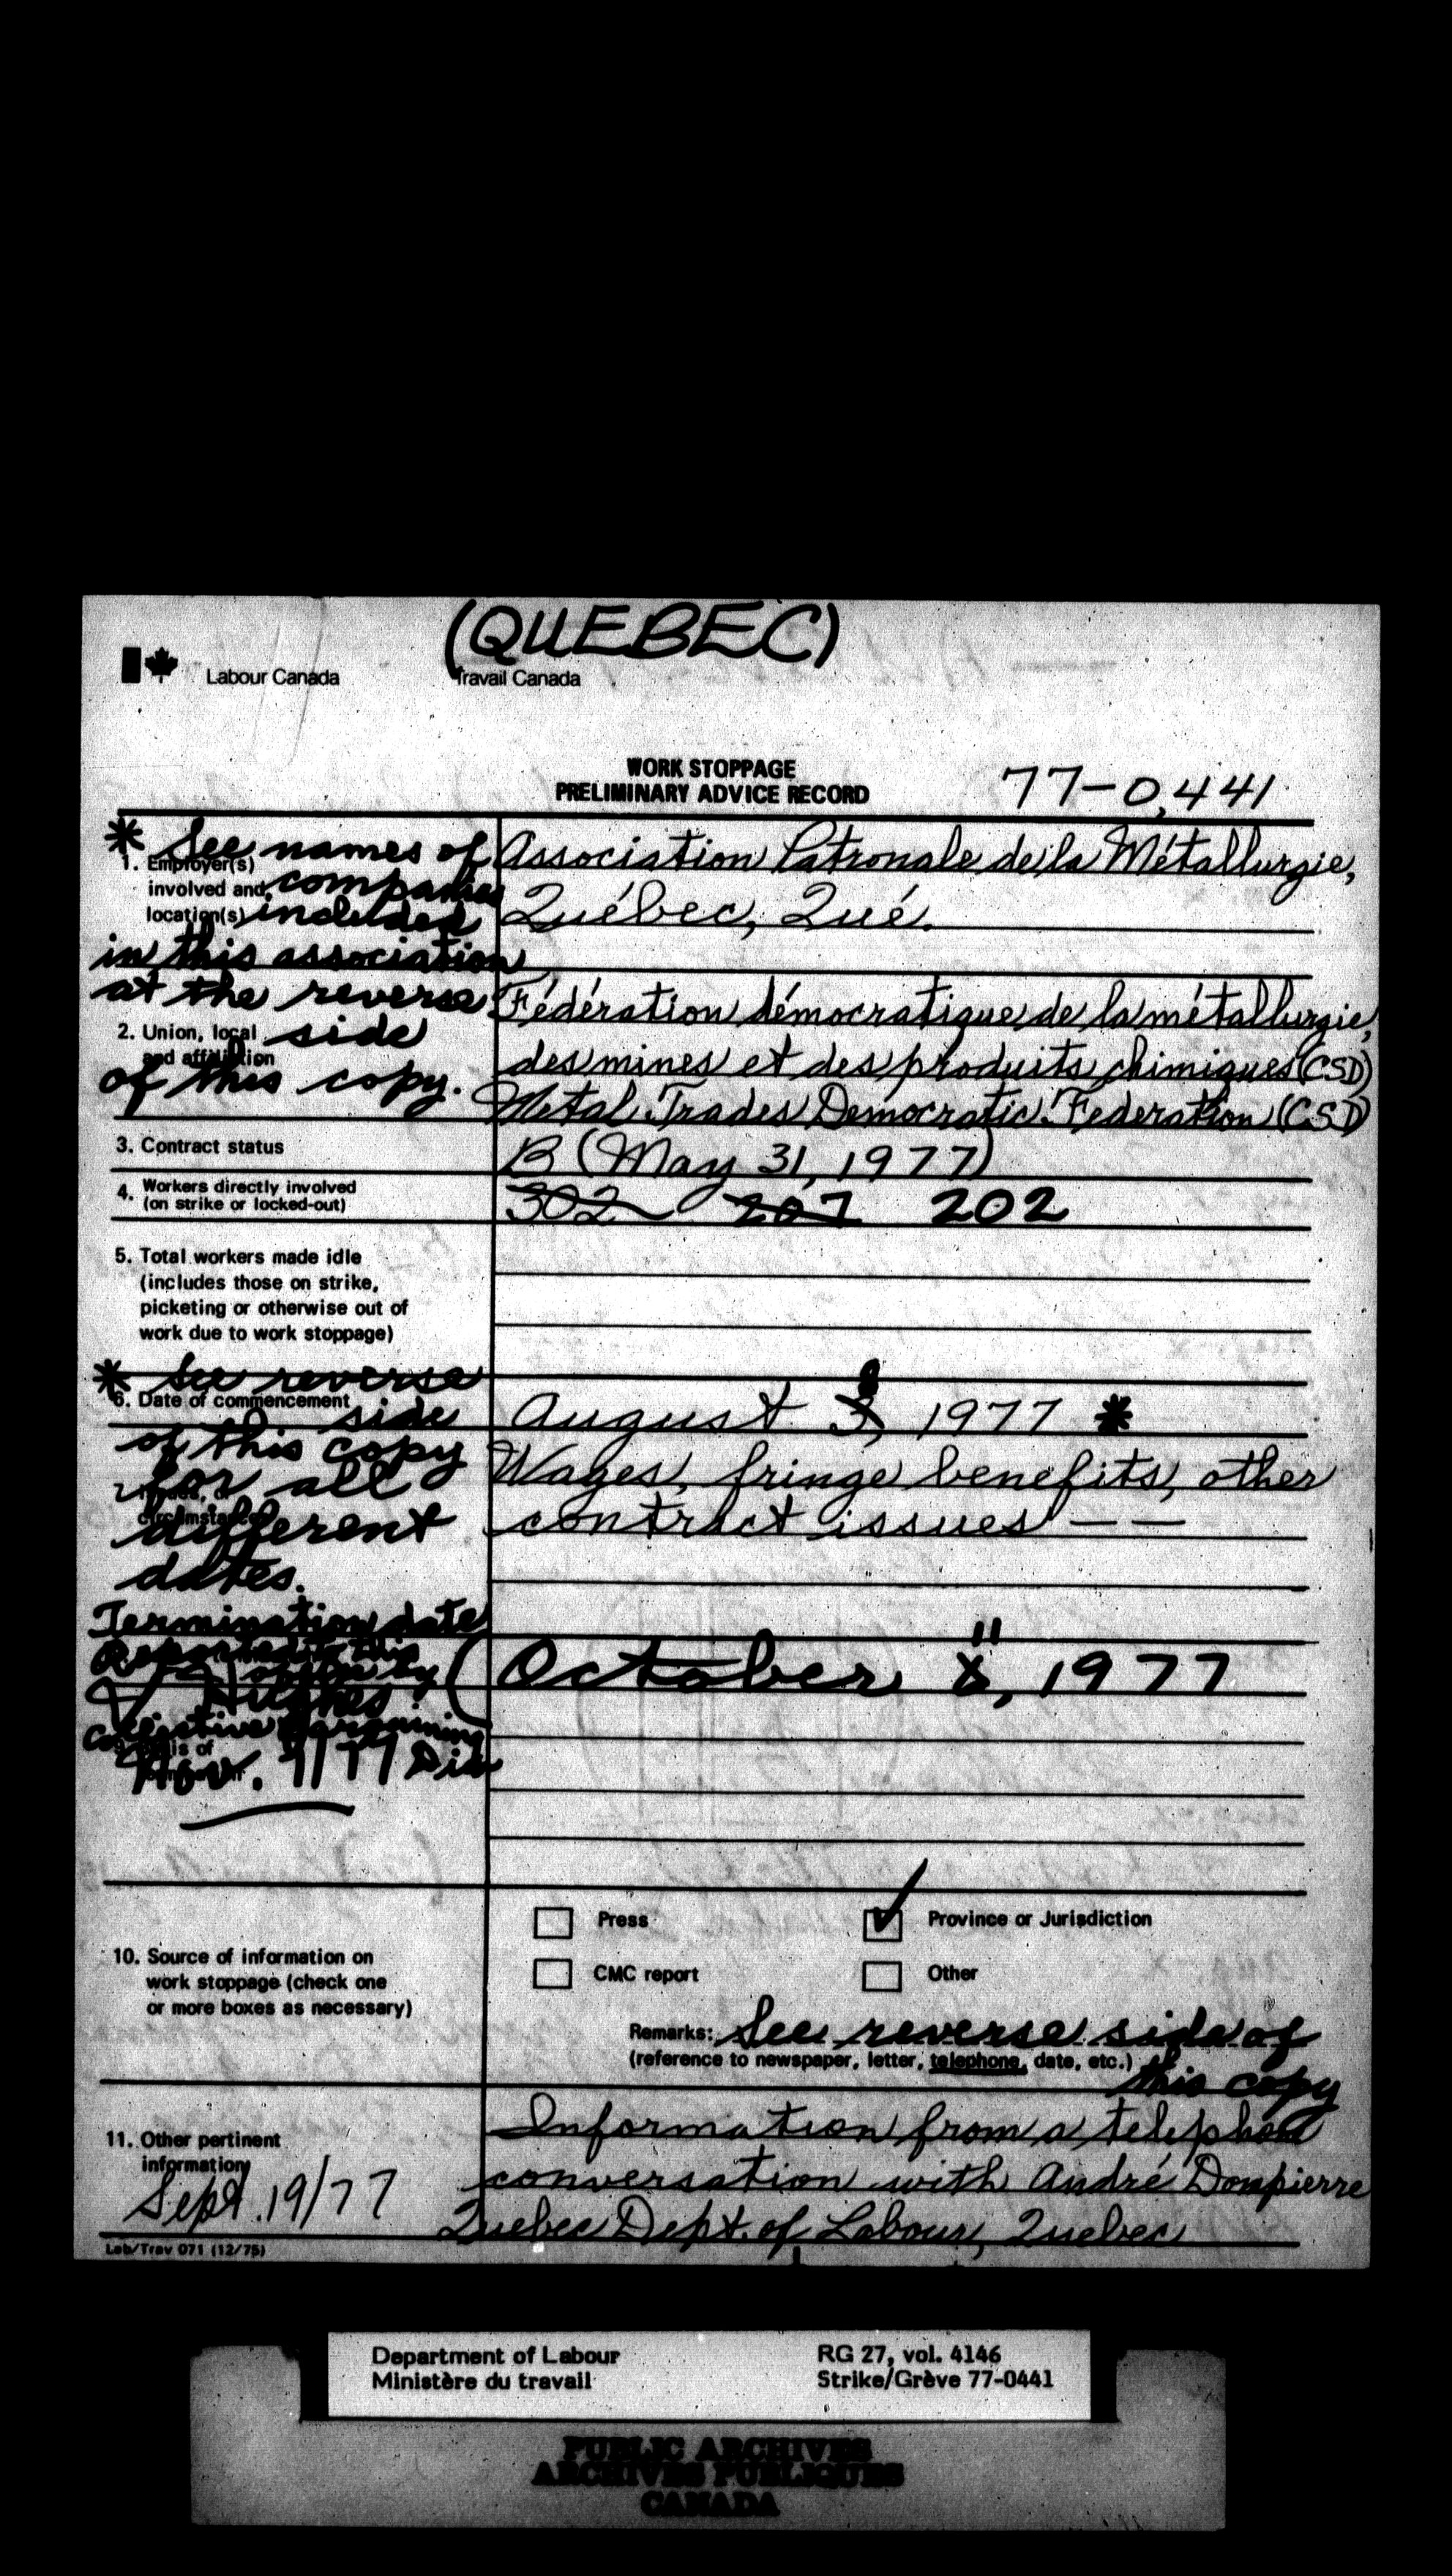 (QUEBEC)
Labour Canada Travail Canada
WORK STOPPAGE
PRELIMINARY ADVICE RECORD
77-0,441
* See names of
companies
included
in this association
at the reverse
side
of this copy.
1. Employer(s)
involved and
location(s)
Association Patronale de la Métallurgie,
Québec, Qué.
2. Union, local
and affiliation
Fédération démocratique de la métallurgie,
des mines et des produits chimiques (CSD)
Metal Trades Democratic Federation (CSD)
3. Contract status
B (May 31, 1977)
4. Workers directly involved
(on strike or locked-out)
302 207 202
5. Total workers made idle
(includes those on strike,
picketing or otherwise out of
work due to work stoppage)
* See reverse
side
of this copy
for all
different
dates.
6. Date of commencement
August 3, 8 1977 *
Wages, fringe benefits, other
contract issues — —
Termination date
Reported to this
by
J. Hughes
Collective Bargaining
Nov. 9/77 Div
October 11, 1977
10. Source of information on
work stoppage (check one
or more boxes as necessary)
Press
Province or Jurisdiction
CMC report
Other
Remarks: See reverse side of
(reference to newspaper, letter, telephone, date, etc.)
this copy
11. Other pertinent
information
Sept. 19/77
Information from a telephone
conversation with André Dompierre
Quebec Dept. of Labour, Quebec
Lab/Trav 071 (12/75)
Department of Labour
Ministère du travail
RG 27, vol. 4146
Strike/Grève 77-0441
PUBLIC ARCHIVES
ARCHIVES PUBLIQUES
CANADA